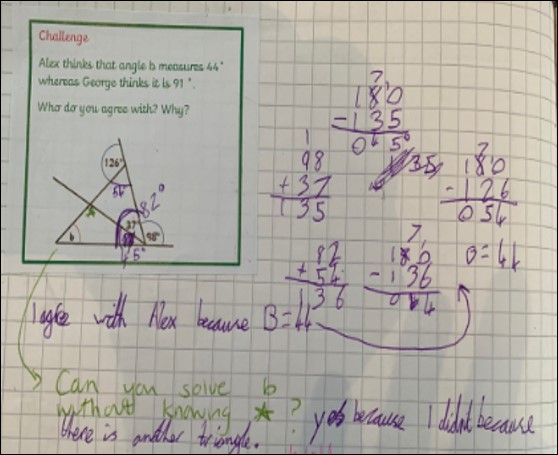 Challenge
Alex thinks that angle b measures 44°
whereas George thinks it is 91°.
Who do you agree with? Why?
126°
54
82°
37
98°
b
45°
180
-135
045
98
+37
135
35
180
-126
054
82
+54
136
180
-136
044
B=44
I agree with Alex because B=44
Can you solve b
without knowing ★? yes because I didnt because
there is another triangle.